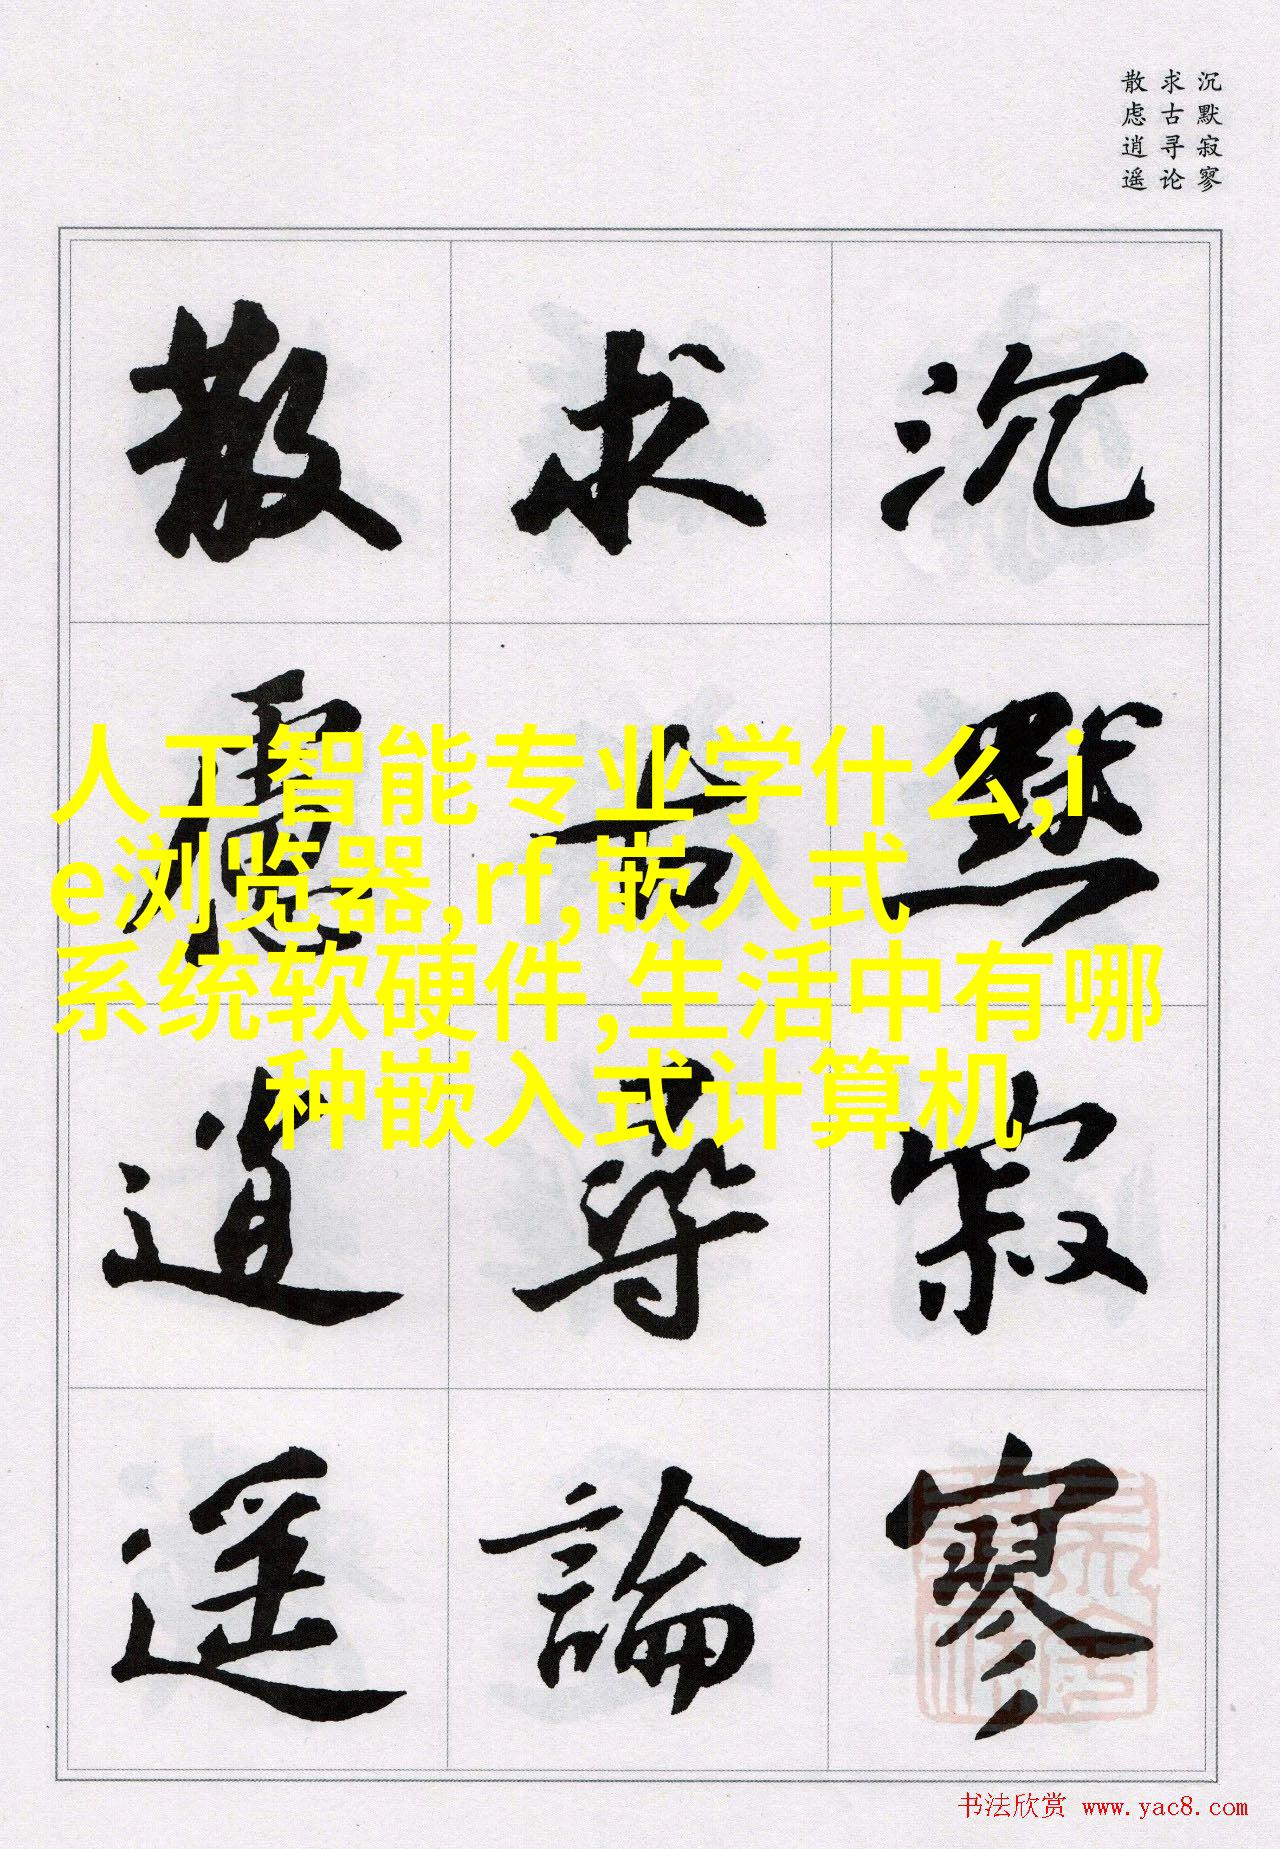 沉默寂寥
求古寻论
散虑逍遥
沉默寂寥
求古尋論
散慮逍遥
人工智能专业学什么,i
e浏览器,rf,嵌入式
系统软硬件,生活中有哪
种嵌入式计算机
书法欣赏 www.yac8.com